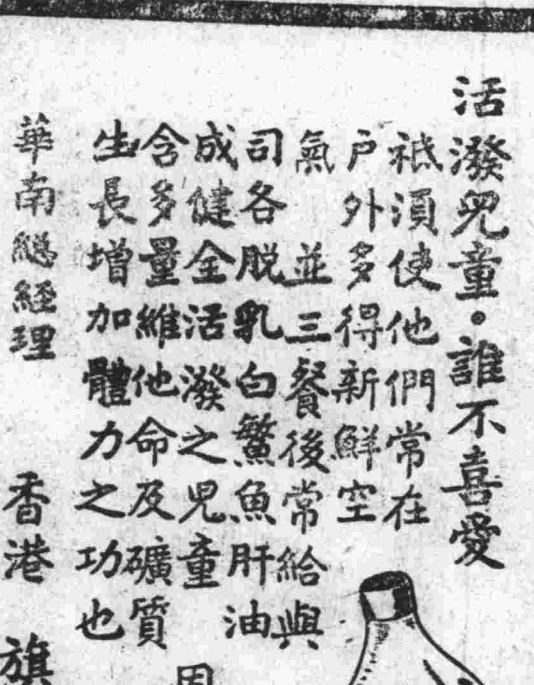 活潑兒童。誰不喜愛
祗須使他們常在
戶外多得新鮮空
氣 並三餐後常給與
司各脫乳白鰵魚肝油
成健全活潑之兒童 因
含多量維他命及礦質
生長增加體力之功也
華南總經理 香港 旗